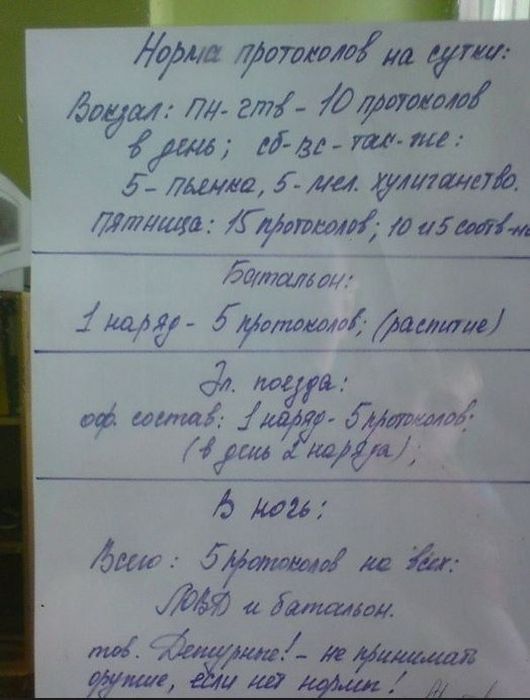 Норма протоколов на сутки:
Вокзал: пн-чтв - 10 протоколов
в день; сб-вс-так-же:
5-пьянка, 5-мел. хулиганство.
пятница: 15 протоколов; 10 и 5 соотв-но
Батальон:
1 наряд - 5 протоколов; (распитие)
Эл. поезда:
оф. состав: 1 наряд-5 протоколов;
(в день 2 наряда);
В ночь:
Всего: 5 протоколов на всех:
ЛОВД и батальон.
тов. Дежурные! - не принимать
оружие, если нет нормы!